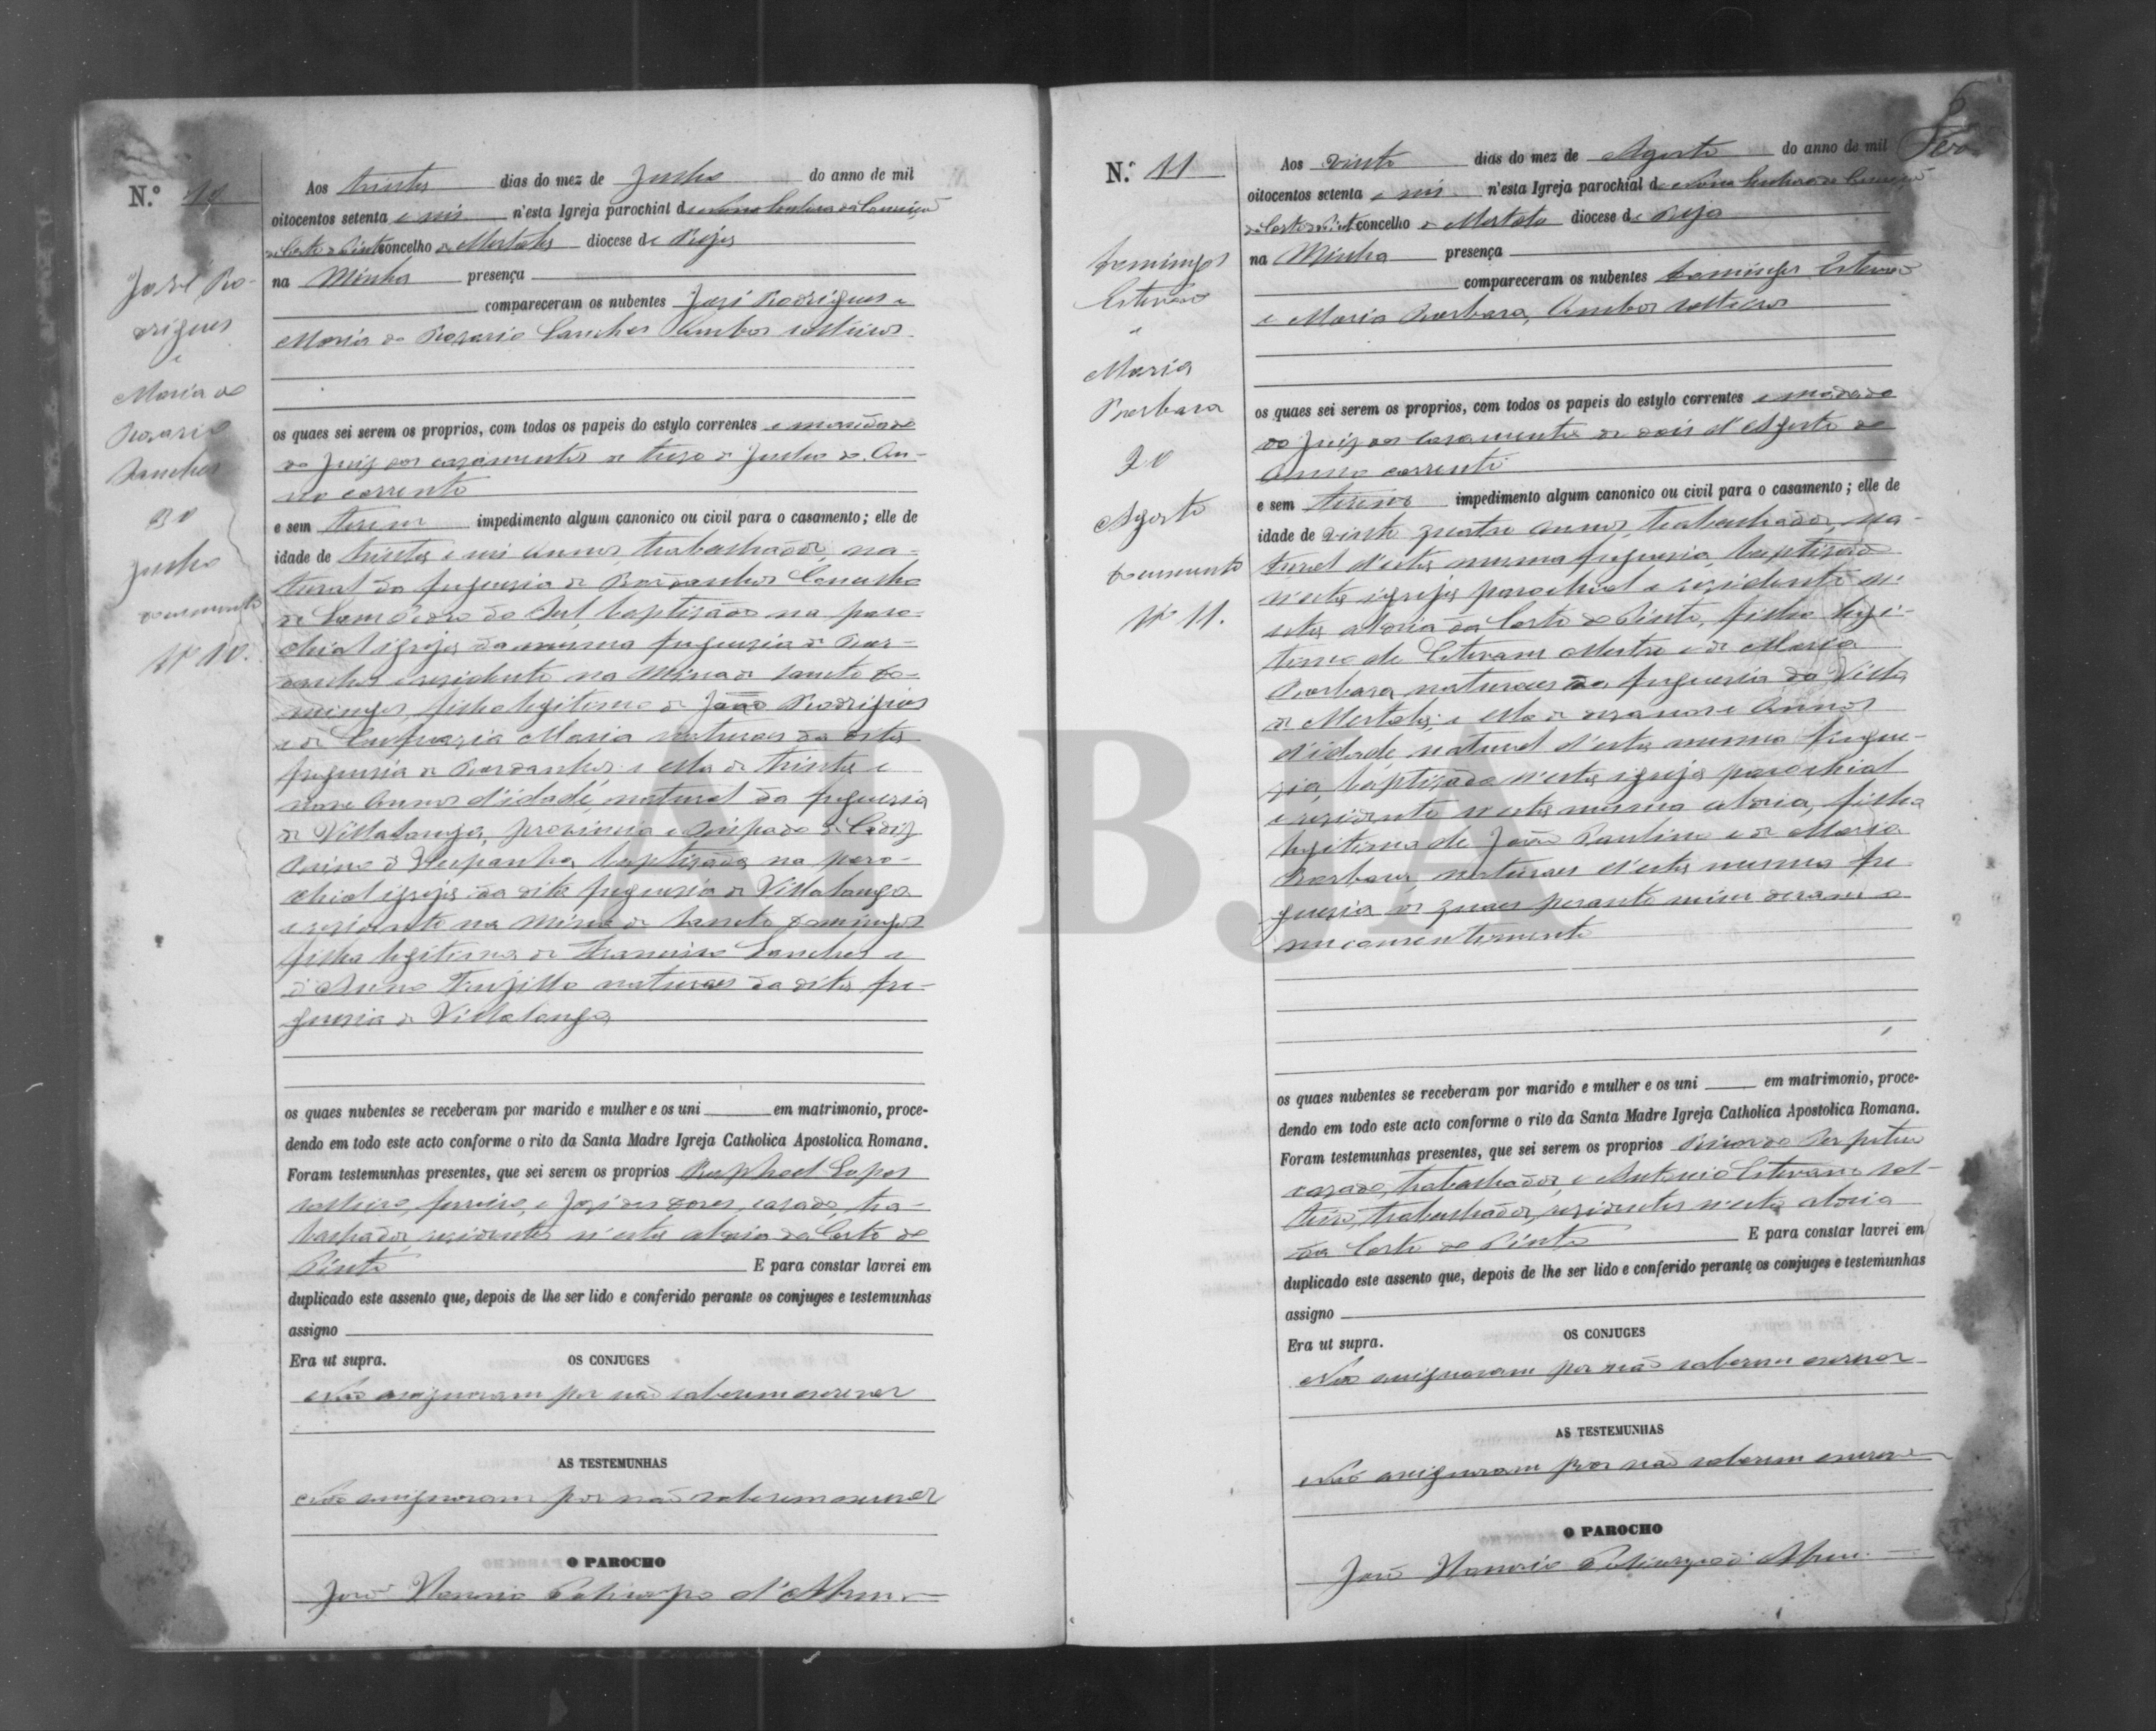 N.º 10
José Ro-
drigues
e
Maria do
Rosario
Sanches
30
Junho
documento
Nº 10.
Aos trinta dias do mez de Junho do anno de mil
oitocentos setenta e seis n'esta Igreja parochial de Nossa Senhora da Conceição
da Corte do Pinto concelho de Mertola diocese de Beja
na Minha presença
compareceram os nubentes José Rodrigues e
Maria do Rosario Sanches Ambos solteiros
os quaes sei serem os proprios, com todos os papeis do estylo correntes e mandado
do Juiz dos casamentos de treze de Junho do An-
no corrente
e sem terem impedimento algum canonico ou civil para o casamento; elle de
idade de trinta e seis Annos, trabalhador, na-
tural da freguezia de Concelho
de Sam Pedro do Sul, baptisado na paro-
chial igreja da mesma freguezia de
e residente na Mina de Sancto Do-
mingos, filho legitimo de João Rodrigues
e de Maria naturaes da dita
freguezia de e ella de trinta e
nove Annos d'idade, natural da freguezia
de Villaluenga, provincia e Bispado de Cadiz
Reino d'Hespanha, baptisada na paro-
chial igreja da dita freguezia de Villaluenga
e residente na Mina de Sancto Domingos
filha legitima de Francisco Sanches e
d'Anna Trujillo naturaes da dita fre-
guezia de Villaluenga
os quaes nubentes se receberam por marido e mulher e os uni em matrimonio, proce-
dendo em todo este acto conforme o rito da Santa Madre Igreja Catholica Apostolica Romana.
Foram testemunhas presentes, que sei serem os proprios Raphael Lopes
solteiro, ferreiro, e José das Dores, casado, tra-
balhador, residentes n'esta aldeia da Corte do
Pinto E para constar lavrei em
duplicado este assento que, depois de lhe ser lido e conferido perante os conjuges e testemunhas
assigno
Era ut supra. OS CONJUGES
Não assignaram por não saberem escrever
AS TESTEMUNHAS
Não assignaram por não saberem escrever
O PAROCHO
João Policarpo d'
N.º 11
Domingos
Estevão
e
Maria
Barbara
20
Agosto
documento
Nº 11.
6
Aos vinte dias do mez de Agosto do anno de mil
oitocentos setenta e seis n'esta Igreja parochial de Nossa Senhora da Conceição
da Corte do Pinto concelho de Mertola diocese de Beja
na Minha presença
compareceram os nubentes Domingos Estevão
e Maria Barbara, Ambos solteiros
os quaes sei serem os proprios, com todos os papeis do estylo correntes e mandado
do Juiz dos casamentos de dois d'Agosto do
Anno corrente
e sem terem impedimento algum canonico ou civil para o casamento; elle de
idade de vinte quatro annos, trabalhador, na-
tural d'esta mesma freguezia, baptisado
n'esta igreja parochial e residente n'
esta aldeia da Corte do Pinto, filho legi-
timo de Estevam Mestre e de Maria
Barbara naturaes da freguezia da Villa
de Mertola; e ella de dezanove Annos
d'idade, natural d'esta mesma fregue-
zia, baptisada n'esta igreja parochial
e residente n'esta mesma aldeia, filha
legitima de João Paulino e de Maria
Barbara, naturaes d'esta mesma fre
guezia, os quaes perante mim deram o
seu consentimento
os quaes nubentes se receberam por marido e mulher e os uni em matrimonio, proce-
dendo em todo este acto conforme o rito da Santa Madre Igreja Catholica Apostolica Romana.
Foram testemunhas presentes, que sei serem os proprios
casado, trabalhador, e Antonio Estevam sol-
teiro, trabalhador, residentes n'esta aldeia
da Corte do Pinto E para constar lavrei em
duplicado este assento que, depois de lhe ser lido e conferido perante os conjuges e testemunhas
assigno
Era ut supra. OS CONJUGES
Não assignaram por não saberem escrever
AS TESTEMUNHAS
Não assignaram por não saberem escrever
O PAROCHO
João Policarpo d'
ADBJA